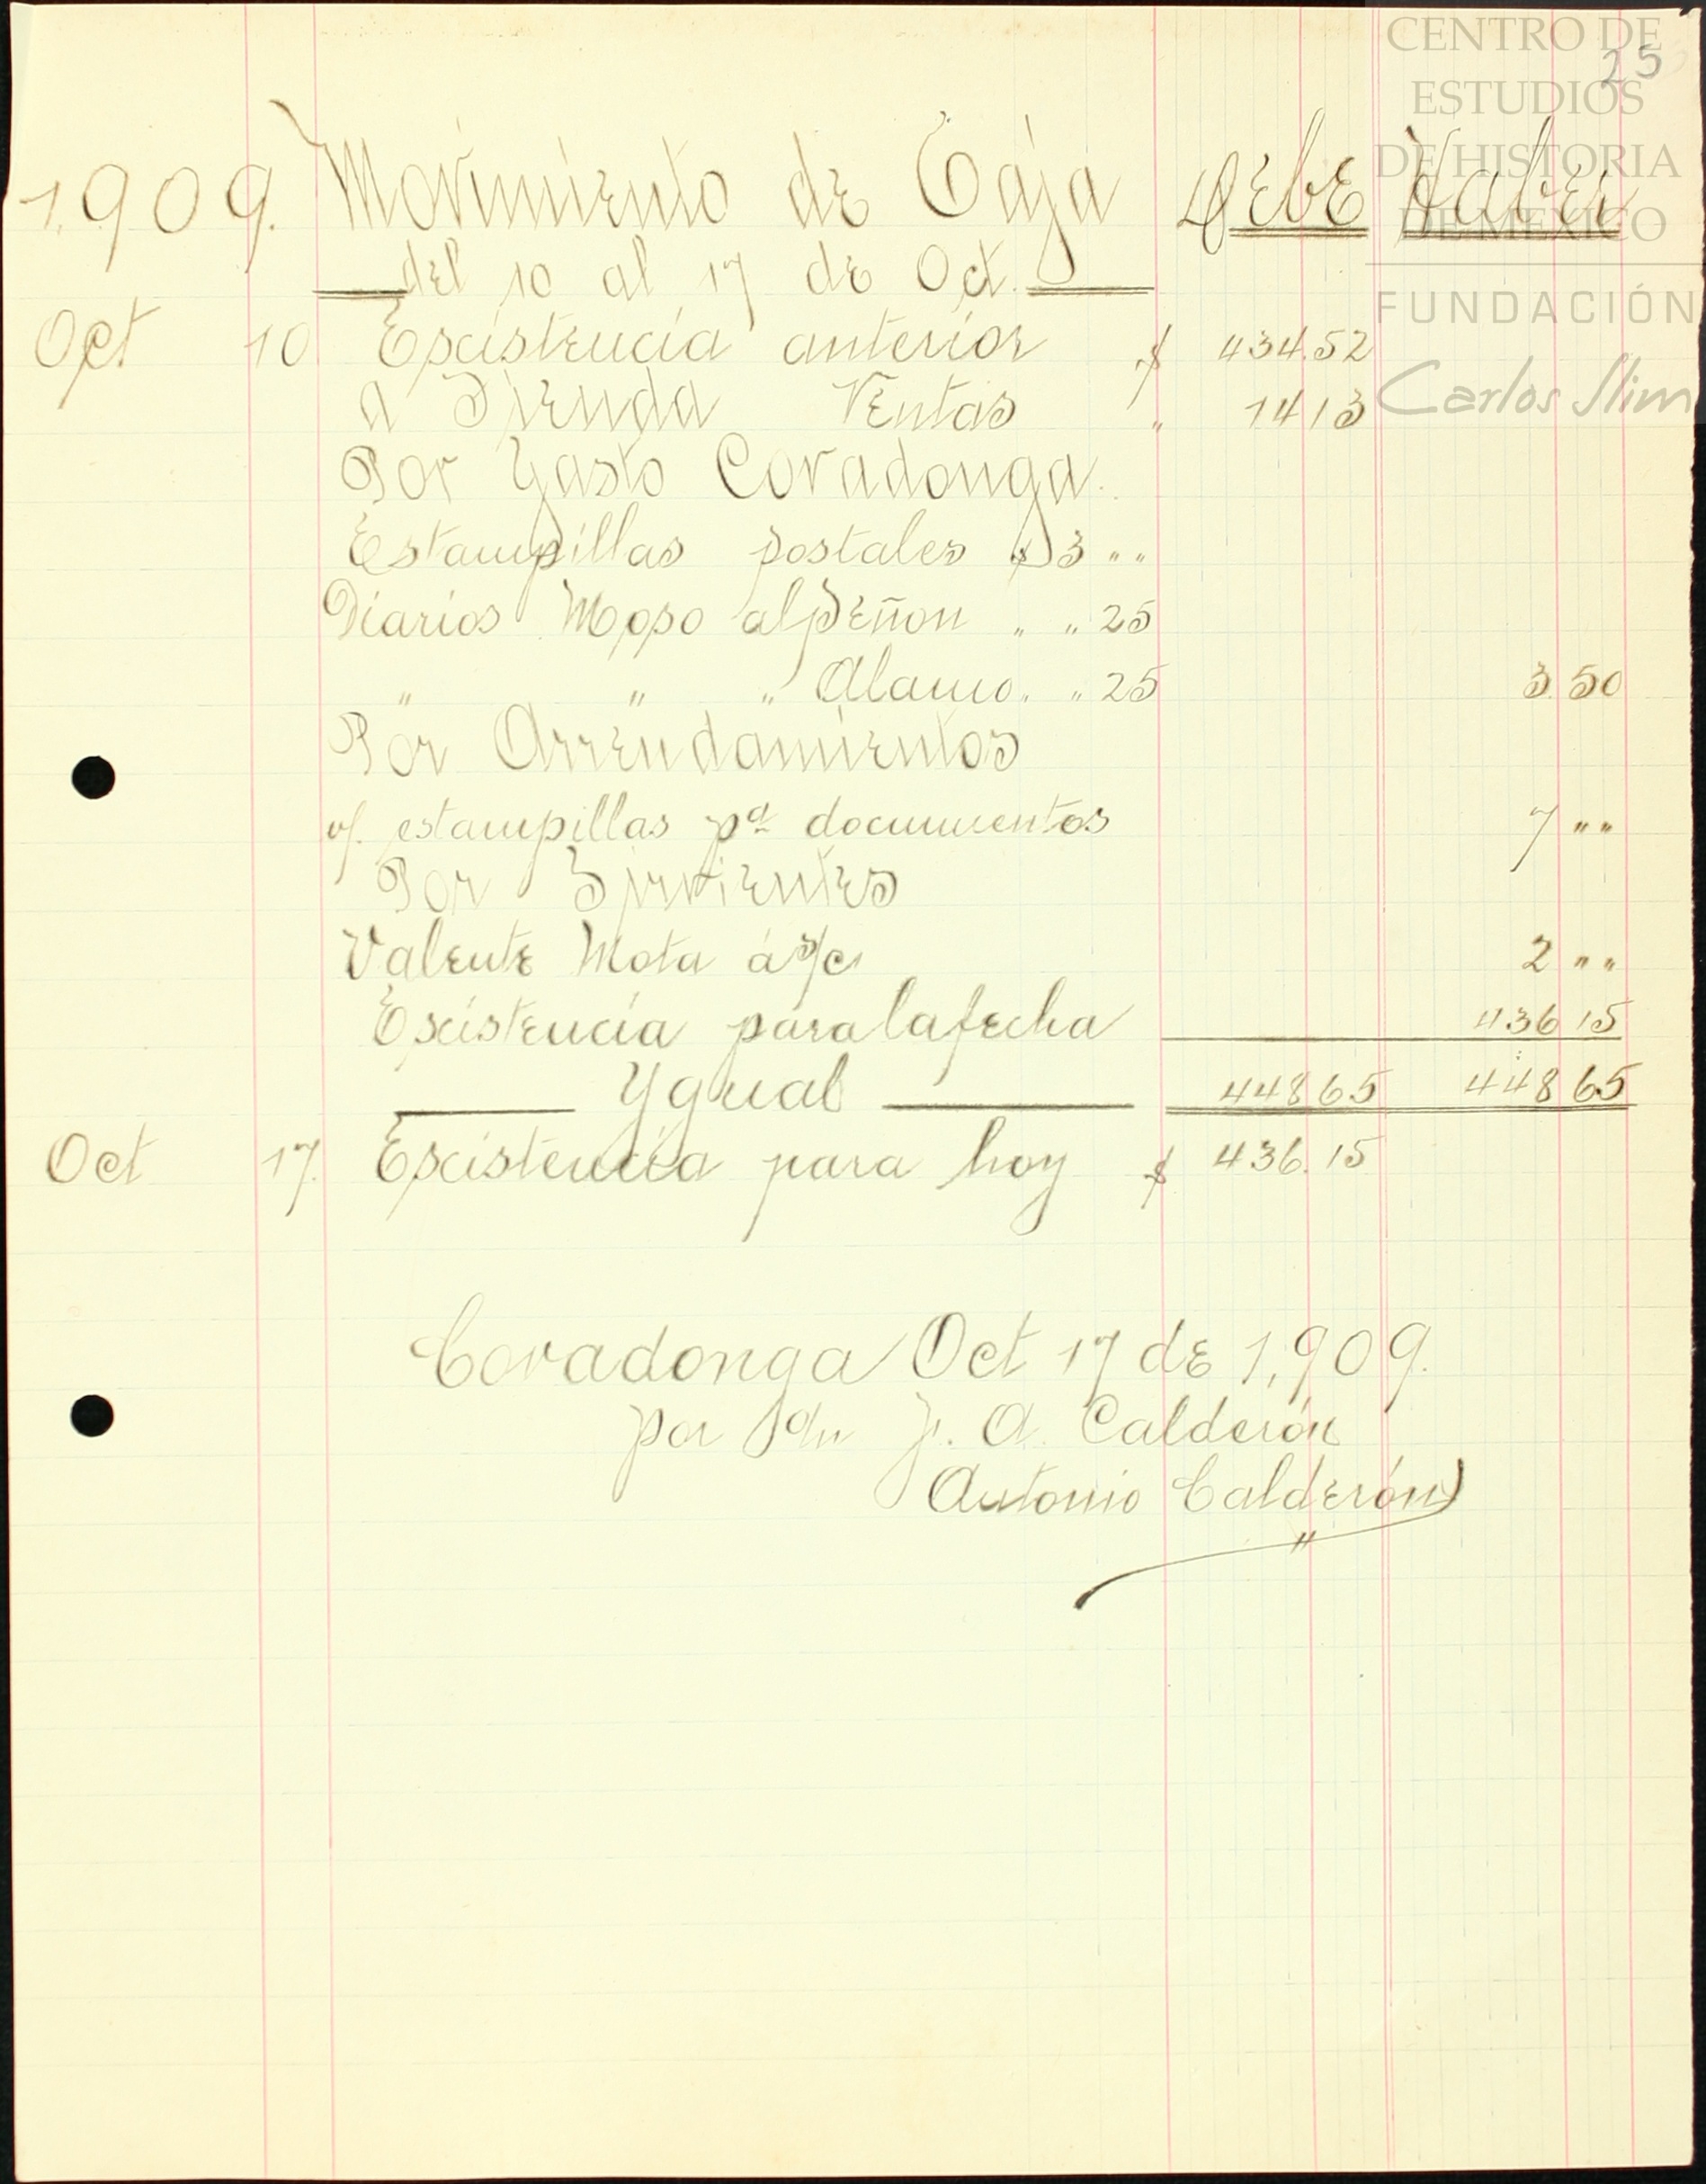 CENTRO DE
ESTUDIOS
DE HISTORIA
DE MEXICO
FUNDACIÓN
Carlos Slim
25
1,909. Movimiento de Caja Debe Haber
del 10 al 17 de Oct.
Oct 10 Escistencia anterior $ 434.52
a Tienda Ventas " 14 13
Por Gasto Covadonga.
Estampillas postales $ 3 " "
Diarios Moso al Peñon " " 25
" " " Alamo " " 25 3.50
Por Arrendamientos
estampillas pª documentos 7 " "
Por Sirvientes
Valente Mota á s/c 2 " "
Escistencia para la fecha 436 15
Ygual 448 65 448 65
Oct 17. Escistencia para hoy $ 436.15
Covadonga Oct 17 de 1,909.
por J. A. Calderón
Antonio Calderón